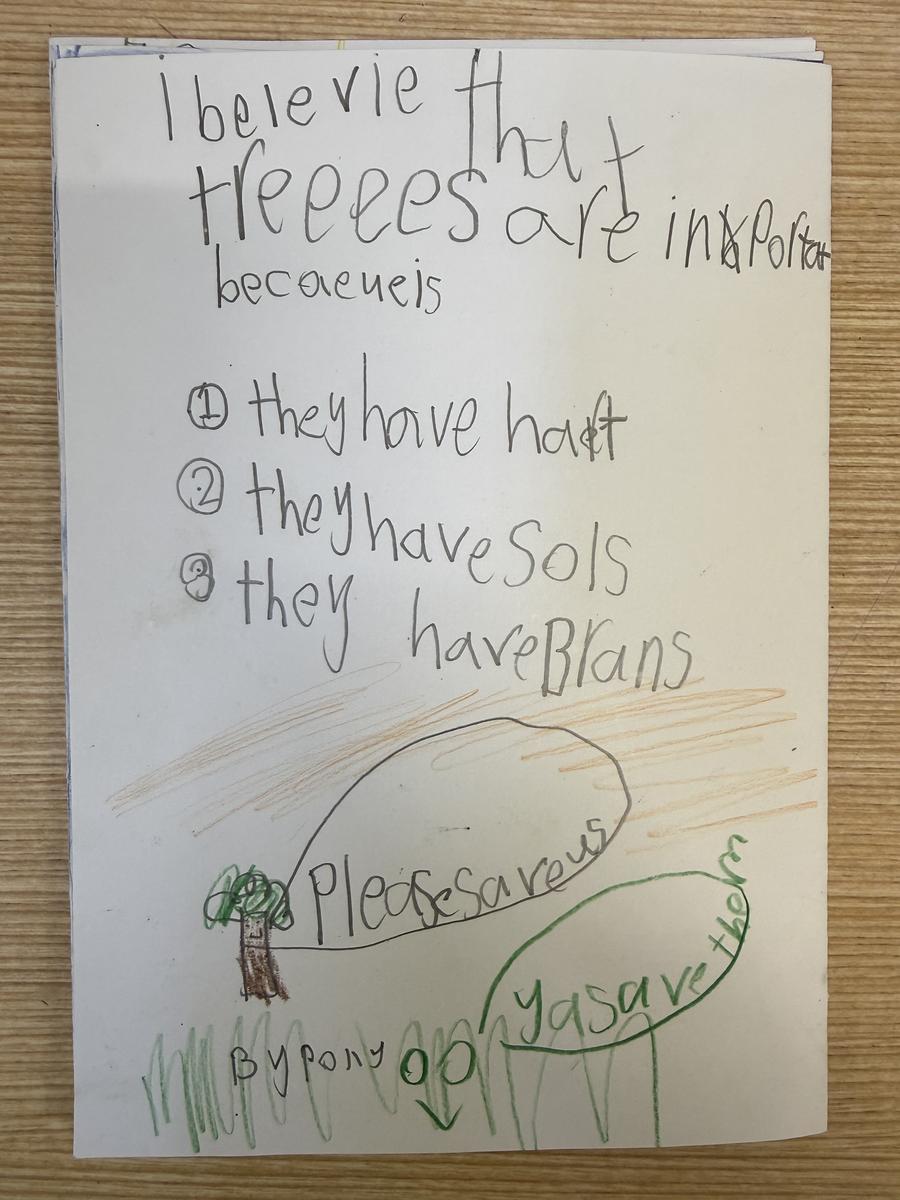 I belevie that
treeees are inportat
becaeueis
① they have haft
② they have Sols
③ they have Brans
Pleasesave us
ya save them
By pony